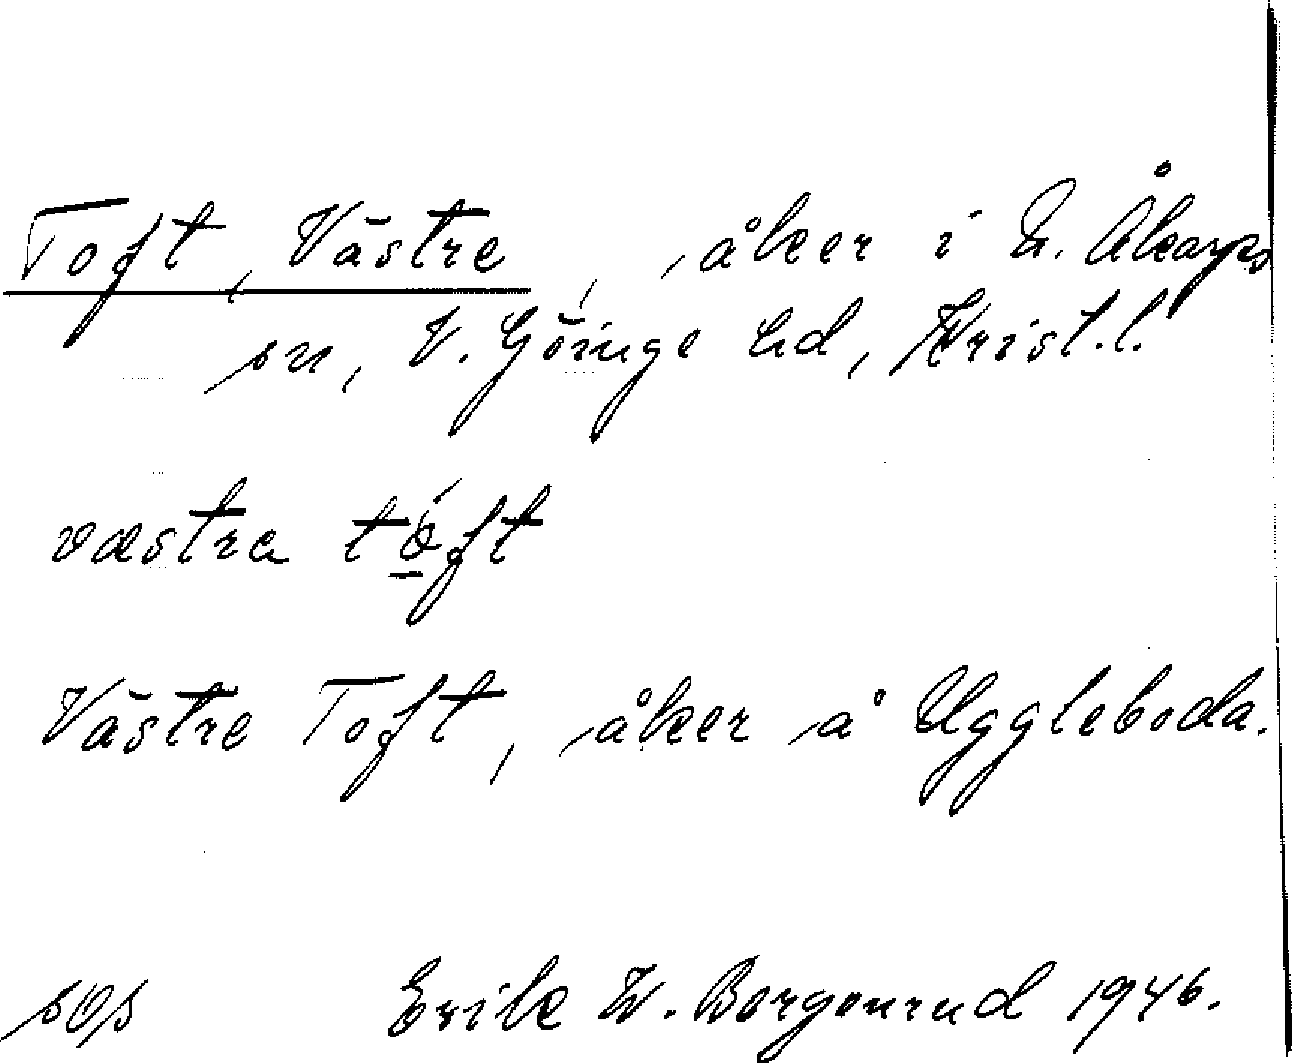 Toft, Västre, åker i N. Åkarps
sn, V. Göinge hd, Krist. l.
væstra tóft
Västre Toft, åker å Uggleboda.
sos Erik W. Borgenrud 1946.